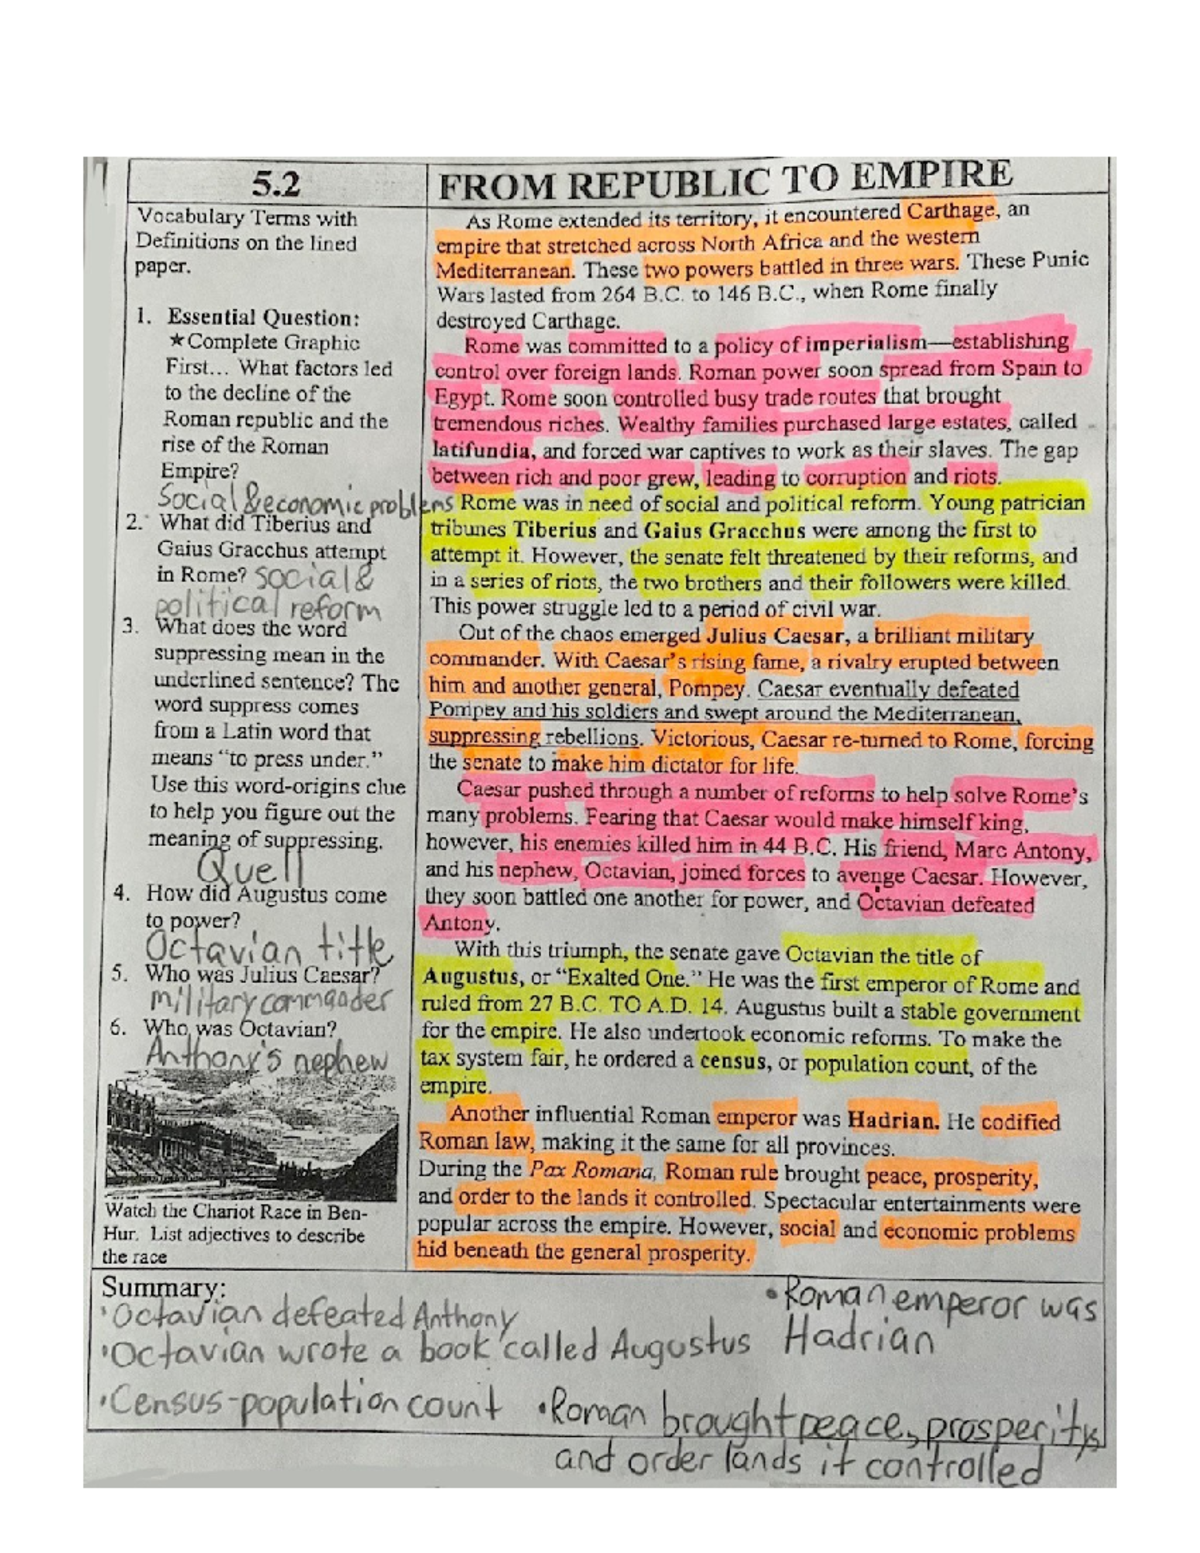 5.2
FROM REPUBLIC TO EMPIRE
Vocabulary Terms with
Definitions on the lined
paper.
1. Essential Question:
★Complete Graphic
First... What factors led
to the decline of the
Roman republic and the
rise of the Roman
Empire?
Social & economic problems
2. What did Tiberius and
Gaius Gracchus attempt
in Rome? social &
political reform
3. What does the word
suppressing mean in the
underlined sentence? The
word suppress comes
from a Latin word that
means "to press under."
Use this word-origins clue
to help you figure out the
meaning of suppressing.
Quell
4. How did Augustus come
to power?
Octavian title
5. Who was Julius Caesar?
military commander
6. Who was Octavian?
Anthony's nephew
Watch the Chariot Race in Ben-
Hur. List adjectives to describe
the race
As Rome extended its territory, it encountered Carthage, an
empire that stretched across North Africa and the western
Mediterranean. These two powers battled in three wars. These Punic
Wars lasted from 264 B.C. to 146 B.C., when Rome finally
destroyed Carthage.
Rome was committed to a policy of imperialism—establishing
control over foreign lands. Roman power soon spread from Spain to
Egypt. Rome soon controlled busy trade routes that brought
tremendous riches. Wealthy families purchased large estates, called
latifundia, and forced war captives to work as their slaves. The gap
between rich and poor grew, leading to corruption and riots.
Rome was in need of social and political reform. Young patrician
tribunes Tiberius and Gaius Gracchus were among the first to
attempt it. However, the senate felt threatened by their reforms, and
in a series of riots, the two brothers and their followers were killed.
This power struggle led to a period of civil war.
Out of the chaos emerged Julius Caesar, a brilliant military
commander. With Caesar's rising fame, a rivalry erupted between
him and another general, Pompey. Caesar eventually defeated
Pompey and his soldiers and swept around the Mediterranean,
suppressing rebellions. Victorious, Caesar re-turned to Rome, forcing
the senate to make him dictator for life.
Caesar pushed through a number of reforms to help solve Rome's
many problems. Fearing that Caesar would make himself king,
however, his enemies killed him in 44 B.C. His friend, Marc Antony,
and his nephew, Octavian, joined forces to avenge Caesar. However,
they soon battled one another for power, and Octavian defeated
Antony.
With this triumph, the senate gave Octavian the title of
Augustus, or "Exalted One." He was the first emperor of Rome and
ruled from 27 B.C. TO A.D. 14. Augustus built a stable government
for the empire. He also undertook economic reforms. To make the
tax system fair, he ordered a census, or population count, of the
empire.
Another influential Roman emperor was Hadrian. He codified
Roman law, making it the same for all provinces.
During the Pax Romana, Roman rule brought peace, prosperity,
and order to the lands it controlled. Spectacular entertainments were
popular across the empire. However, social and economic problems
hid beneath the general prosperity.
Summary:
•Octavian defeated Anthony
•Octavian wrote a book called Augustus
•Census-population count
•Roman emperor was
Hadrian
•Roman brought peace, prosperity,
and order lands it controlled